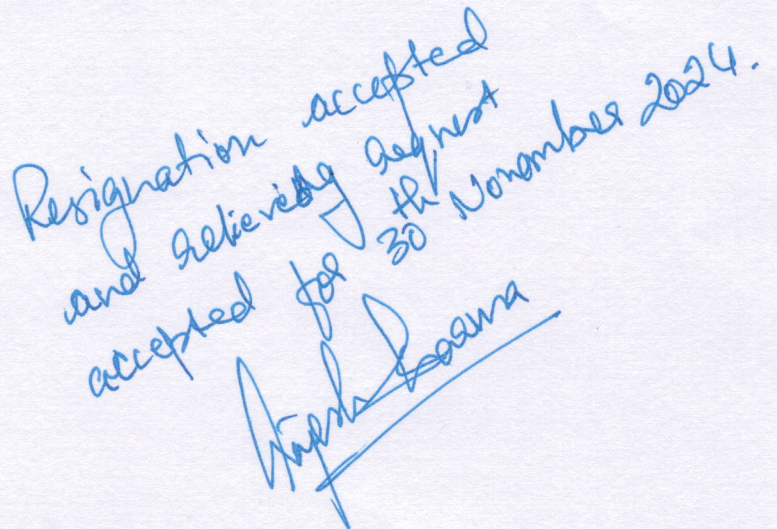 Resignation accepted
and relieving request
accepted for 30th Novomber 2024.